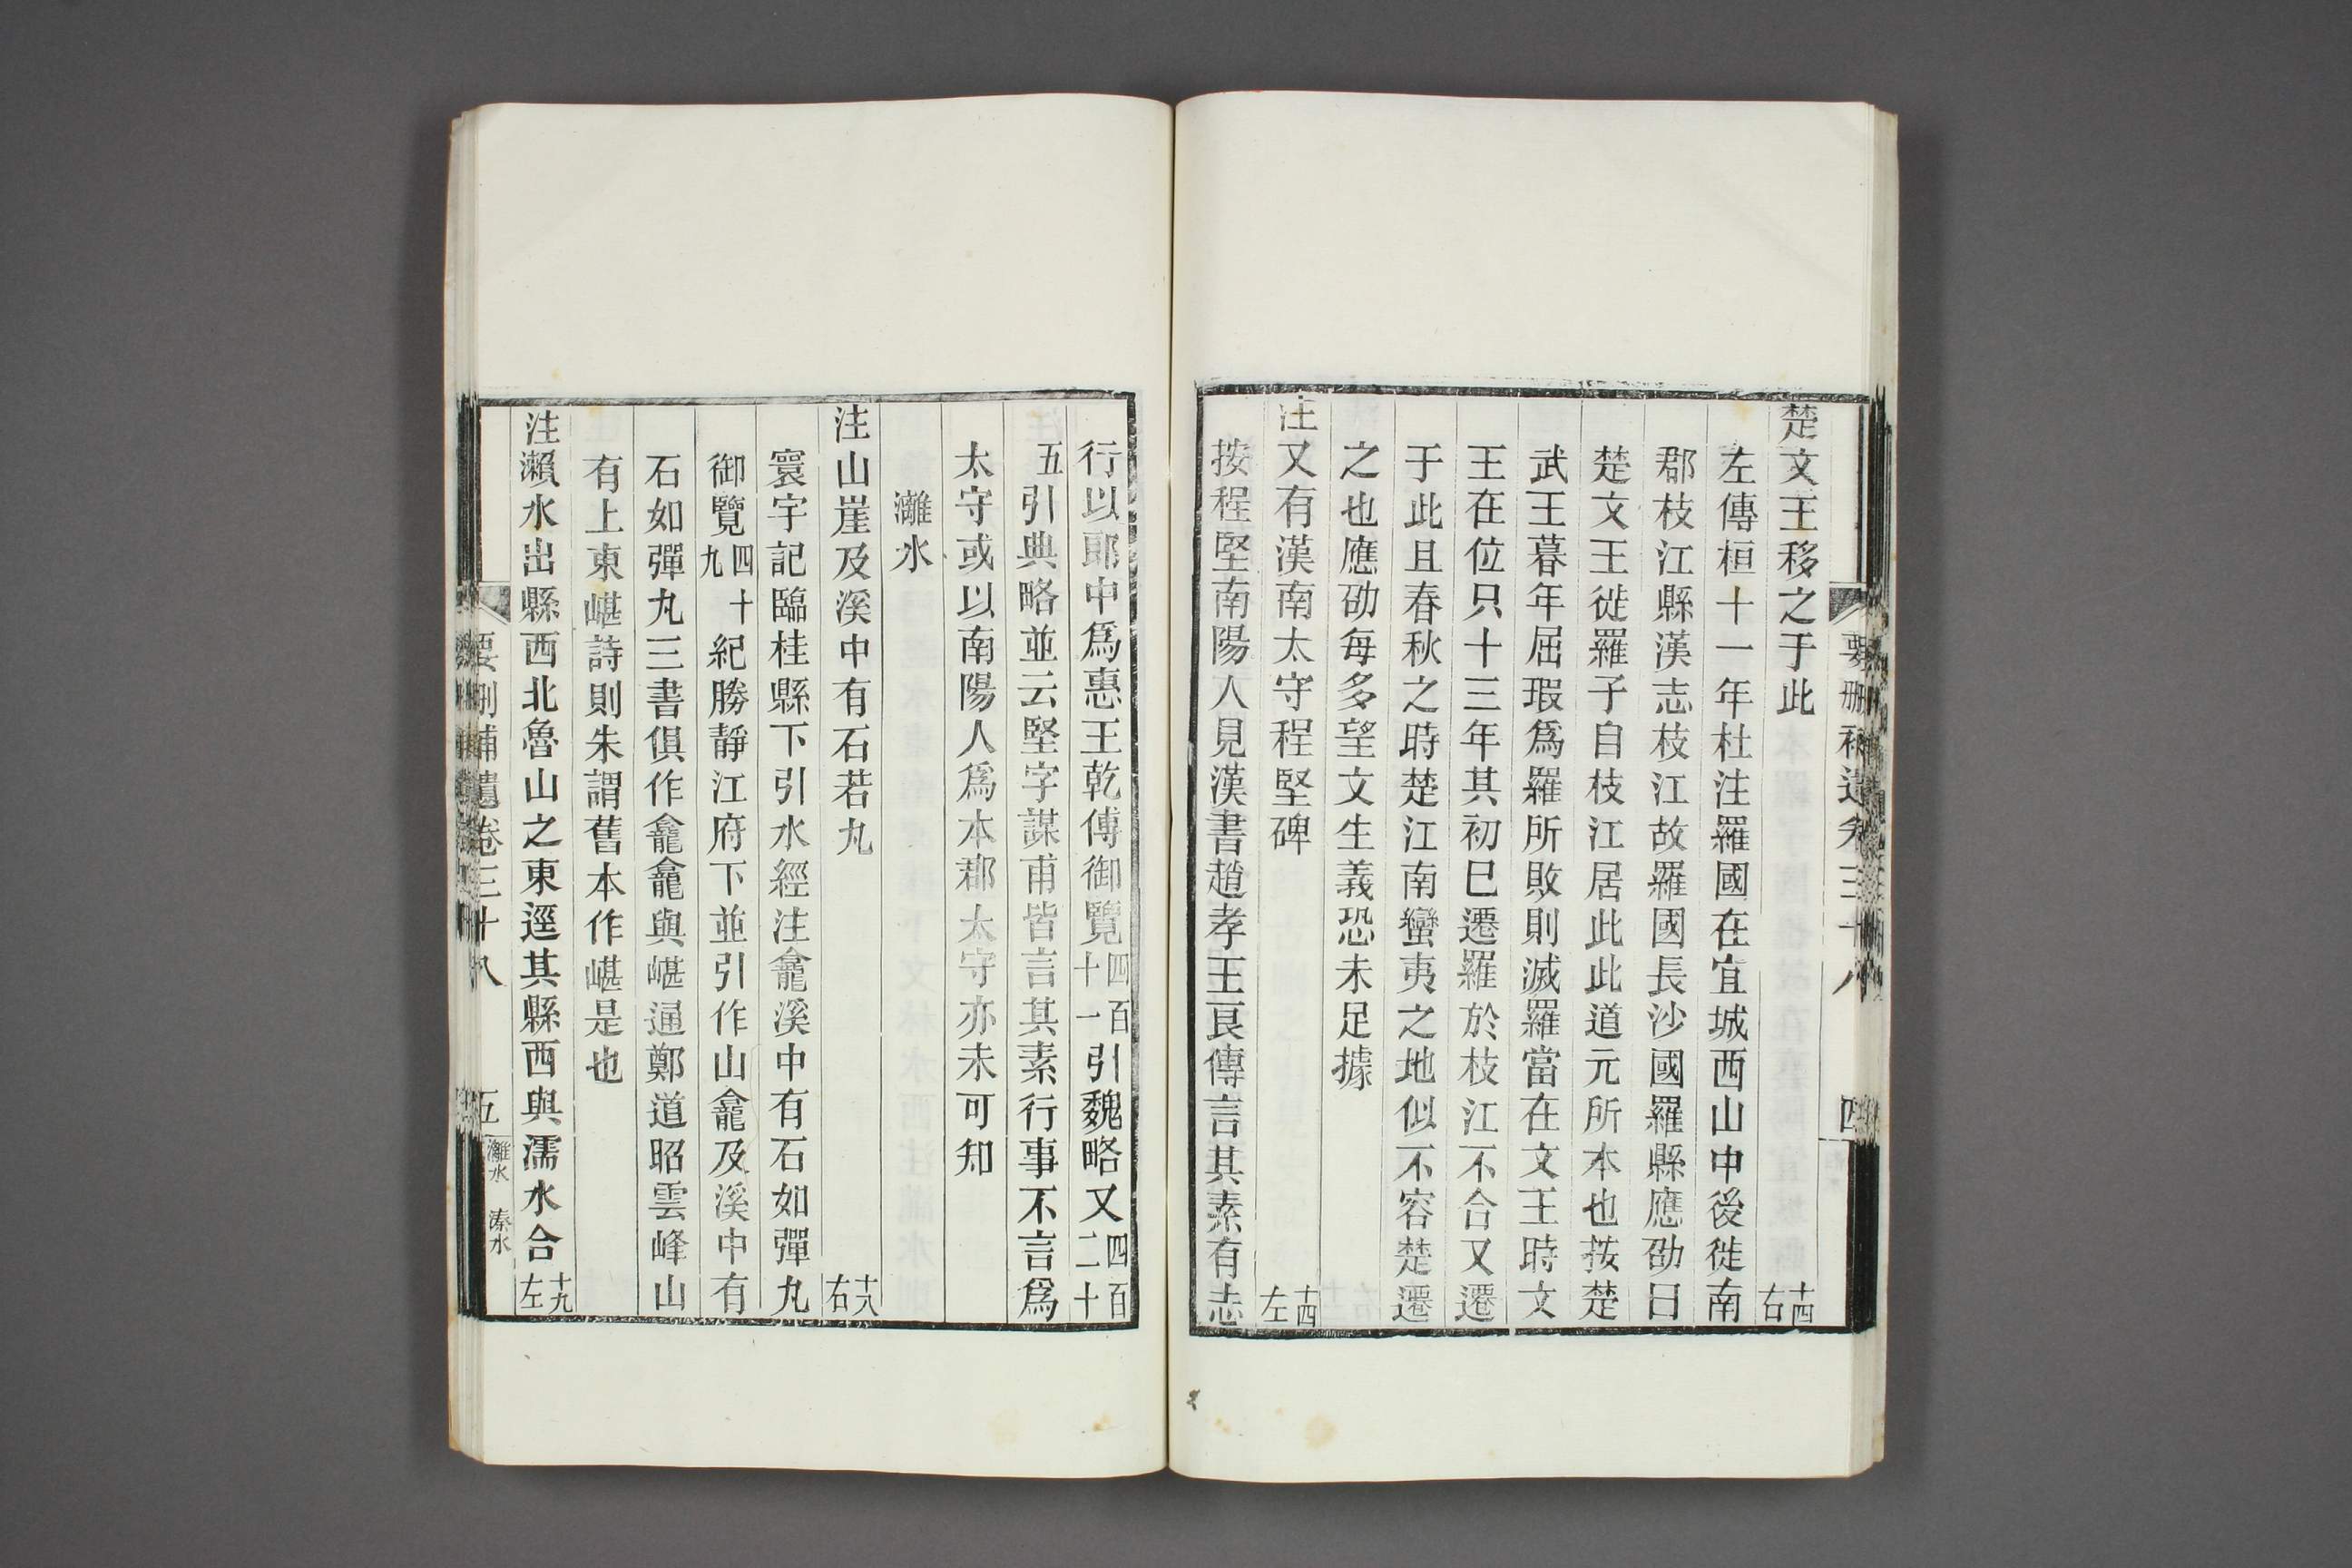 楚文王移之于此十四右
左傳桓十一年杜注羅國在宜城西山中後徙南
郡枝江縣漢志枝江故羅國長沙國羅縣應劭曰
楚文王徙羅子自枝江居此此道元所本也按楚
武王暮年屈瑕爲羅所敗則滅羅當在文王時文
王在位只十三年其初巳遷羅於枝江不合又遷
于此且春秋之時楚江南蠻夷之地似不容楚遷
之也應劭每多望文生義恐未足據
注又有漢南太守程堅碑十四左
按程堅南陽人見漢書趙孝王良傳言其素有志
行以郎中爲惠王乾傅御覽四百十一引魏略又四百二十
五引典略並云堅字謀甫皆言其素行事不言爲
太守或以南陽人爲本郡太守亦未可知
灕水
注山崖及溪中有石若丸十八右
寰宇記臨桂縣下引水經注龕溪中有石如彈丸
御覽四十九紀勝靜江府下並引作山龕及溪中有
石如彈丸三書俱作龕龕與嵁通鄭道昭雲峰山
有上東嵁詩則朱謂舊本作嵁是也
注瀨水出縣西北魯山之東逕其縣西與濡水合十九左
要刪補遺卷三十八
五
灕水
溱水